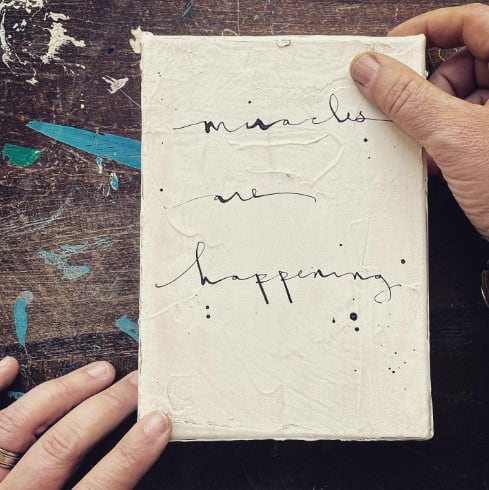 miracles
are
happening